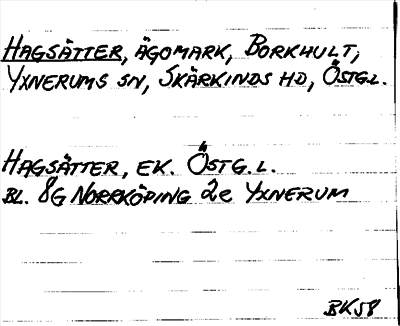 HAGSÄTTER, ÄGOMARK, BORKHULT,
YXNERUMS SN, SKÄRKINDS HD, ÖSTGL.
HAGSÄTTER, EK. ÖSTG.L.
BL. 8G NORRKÖPING 2e YXNERUM
BK58